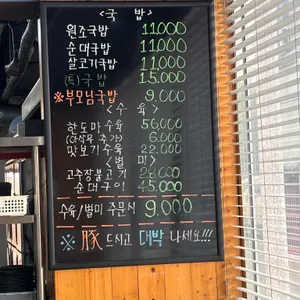 <국 밥>
원조국밥 11,000
순대국밥 11,000
살코기국밥 11,000
(특)국밥 15,000
※부모님국밥 9,000
<수 육>
한도마수육 56,000
6,000
맛보기수육 22,000
<별 미>
고추장불고기 28,000
순대구이 45,000
수육/별미 주문시 9,000
※ 豚 드시고 대박 나세요!!!